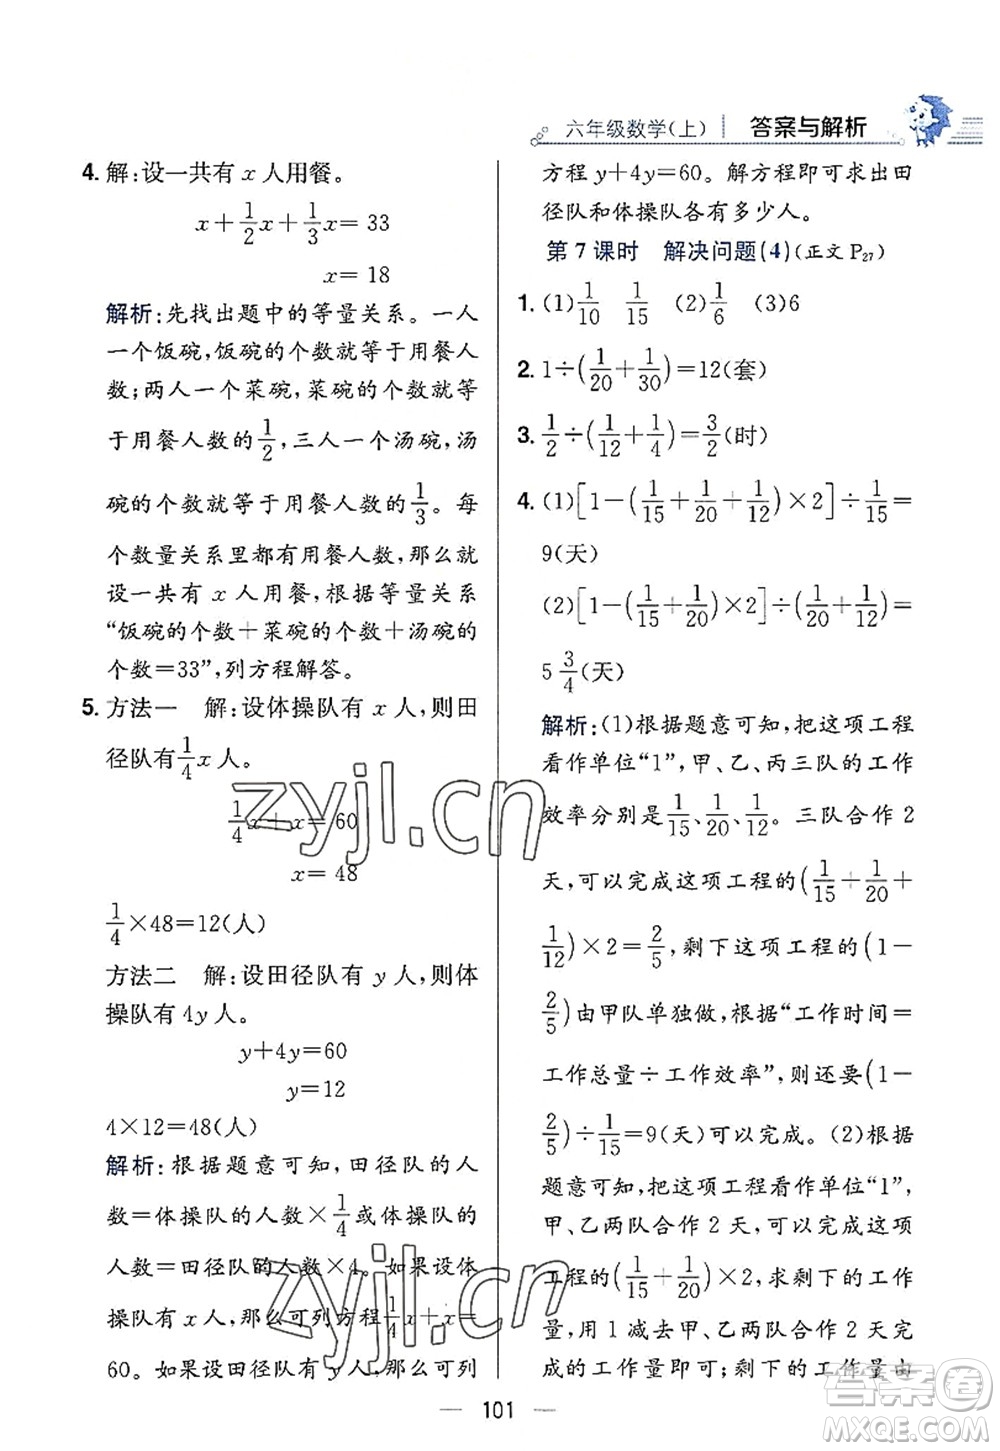 六年级数学(上) 答案与解析
4. 解:设一共有 x 人用餐。
x+1/2x+1/3x=33
x=18
解析:先找出题中的等量关系。一人
一个饭碗,饭碗的个数就等于用餐人
数;两人一个菜碗,菜碗的个数就等
于用餐人数的1/2,三人一个汤碗,汤
碗的个数就等于用餐人数的1/3。每
个数量关系里都有用餐人数,那么就
设一共有 x 人用餐,根据等量关系
“饭碗的个数+菜碗的个数+汤碗的
个数=33”,列方程解答。
5. 方法一 解:设体操队有 x 人,则田
径队有1/4x 人。
1/4x+x=60
x=48
1/4×48=12(人)
方法二 解:设田径队有 y 人,则体
操队有 4y 人。
y+4y=60
y=12
4×12=48(人)
解析:根据题意可知,田径队的人
数=体操队的人数×1/4或体操队的
人数=田径队的人数×4。如果设体
操队有 x 人,那么可列方程1/4x+x=
60。如果设田径队有 y 人,那么可列
方程 y+4y=60。解方程即可求出田
径队和体操队各有多少人。
第 7 课时 解决问题(4)(正文 P27)
1. (1)1/10 1/15 (2)1/6 (3)6
2. 1÷(1/20+1/30)=12(套)
3. 1/2÷(1/12+1/4)=3/2(时)
4. (1)[1-(1/15+1/20+1/12)×2]÷1/15=
9(天)
(2)[1-(1/15+1/20)×2]÷(1/15+1/20)=
5 3/4(天)
解析:(1)根据题意可知,把这项工程
看作单位“1”,甲、乙、丙三队的工作
效率分别是1/15、1/20、1/12。三队合作 2
天,可以完成这项工程的(1/15+1/20+
1/12)×2=2/5,剩下这项工程的(1-
2/5)由甲队单独做,根据“工作时间=
工作总量÷工作效率”,则还要(1-
2/5)÷1/15=9(天)可以完成。(2)根据
题意可知,把这项工程看作单位“1”,
甲、乙两队合作 2 天,可以完成这项
工程的(1/15+1/20)×2,求剩下的工作
量,用 1 减去甲、乙两队合作 2 天完
成的工作量即可;剩下的工作量由
101
zyjl.cn
zyjl.cn
答案圈
MXQE.COM